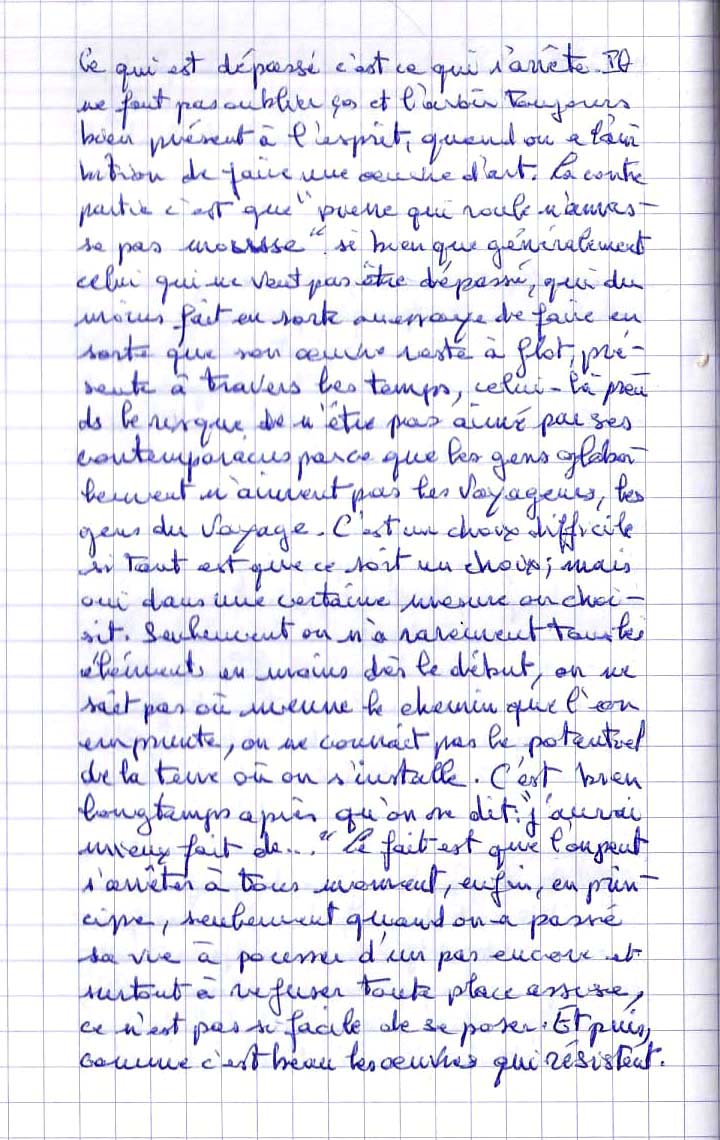 Ce qui est dépassé c'est ce qui s'arrête. Il
ne faut pas oublier ça et l'avoir toujours
bien présent à l'esprit, quand on a l'am
bition de faire une oeuvre d'art. La contre
partie c'est que "pierre qui roule n'amas-
se pas mousse" si bien que généralement
celui qui ne veut pas être dépassé, qui du
moins fait en sorte ou essaye de faire en
sorte que son oeuvre reste à flot, pré-
sente à travers les temps, celui-là pren
ds le risque de n'être pas aimé par ses
contemporains parce que les gens globa
lement n'aiment pas les voyageurs, les
gens du voyage. C'est un choix difficile
si tant est que ce soit un choix; mais
oui dans une certaine mesure on choi-
sit. Seulement on n'a rarement tous les
éléments en mains dès le début, on ne
sait pas où menne le chemin que l'on
emprunte, on ne connait pas le potentiel
de la terre où on s'installe. C'est bien
longtemps après qu'on se dit: "j'aurai
mieux fait de..." Le fait est que l'on peut
s'arrêter à tous moment, enfin, en prin-
cipe, seulement quand on a passé
sa vie à pousser d'un pas encore et
surtout à refuser toute place assise,
ce n'est pas si facile de se poser. Et puis,
comme c'est beau les oeuvres qui résistent.